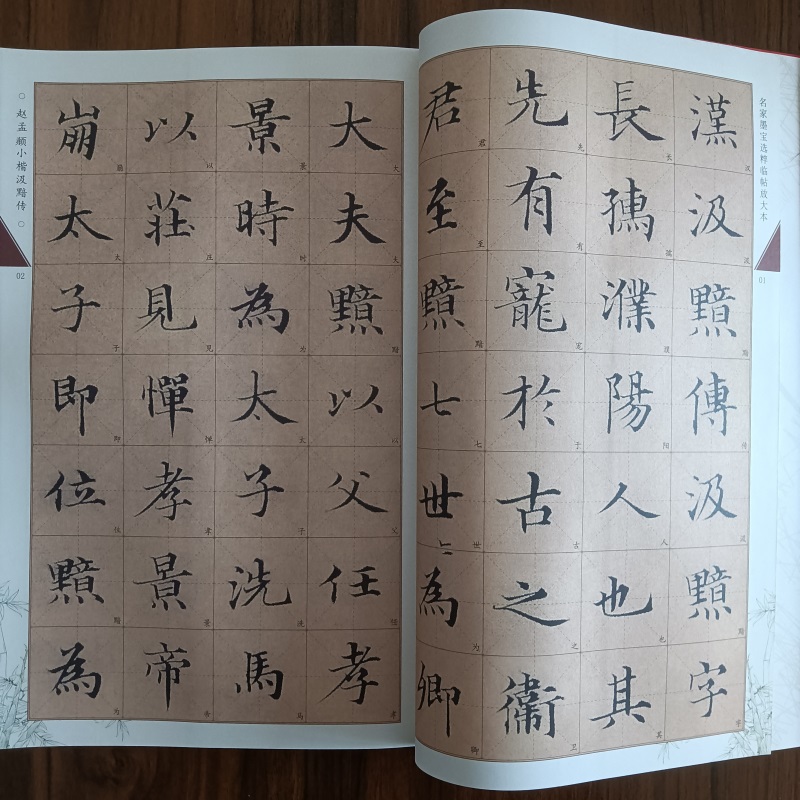 名家墨宝选粹临帖放大本
01
漢汲黯傳汲黯字
長孺濮陽人也其
先有寵於古之衛
君至黯七世〻為卿
大夫黯以父任孝
景時為太子洗馬
以莊見憚孝景帝
崩太子即位黯為
○ 赵孟頫小楷汲黯传 ○
02